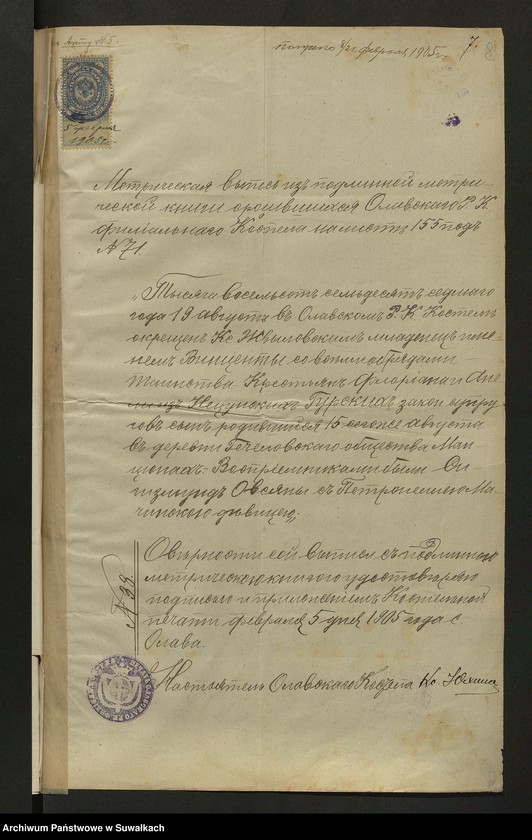 Акту № 5.
получено 8/21 февраля 1905 г.
7.
5 февраля
1905 г.
Метрическая выпись изъ подлинной метри-
ческой книги о родившихся Олавскаго Р. К.
филіальнаго Костела на листѣ 155 подъ
№ 71.
"Тысяча восемьсотъ семьдесятъ седмаго
года 19 августа въ Олавскомъ Р. К. Костелѣ
окрещенъ Кс. младенецъ име-
немъ Винценты со всѣми обрядами
Таинства Крестьянъ Флоріана и Ане-
изъ Гурскихъ закон. супру-
говъ сынъ родившійся 15 сего же августа
въ деревни общества
Воспріемниками были Си-
гизмундъ Овсяны съ Петронелею Ма-
дѣвицею;
№ 39.
О вѣрности сей выписи съ подлинною
метрическою книгою удостовѣряю
подписью и приложеніемъ Костельной
печати февраля 5 дня 1905 года с.
Олава.
Настоятель Олавскаго Костела Кс.
Archiwum Państwowe w Suwałkach